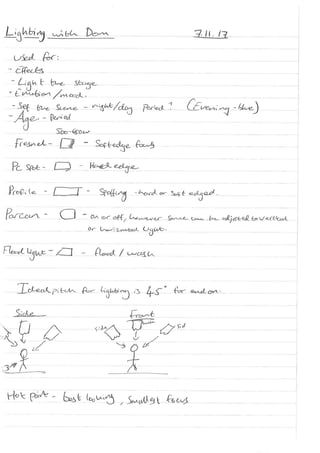 Lighting with Dom 7.11.17
Used for:
- Effects
- Light the stage
- Emotion/mood.
- Set the scene - night/day Period? (Evening - blue)
- Age - Period
500-650w
Fresnel - - Soft edge focus
PC Spot - - Hard edge
Profile - - Spotting - hard or soft edged.
Parcan - - on or off, however some can be adjusted to vertical
or horizontal light.
Flood light - - flood / wash
Ideal pitch for lighting is 45° for end on.
Side Front
Hot point - best looking, smallest focus